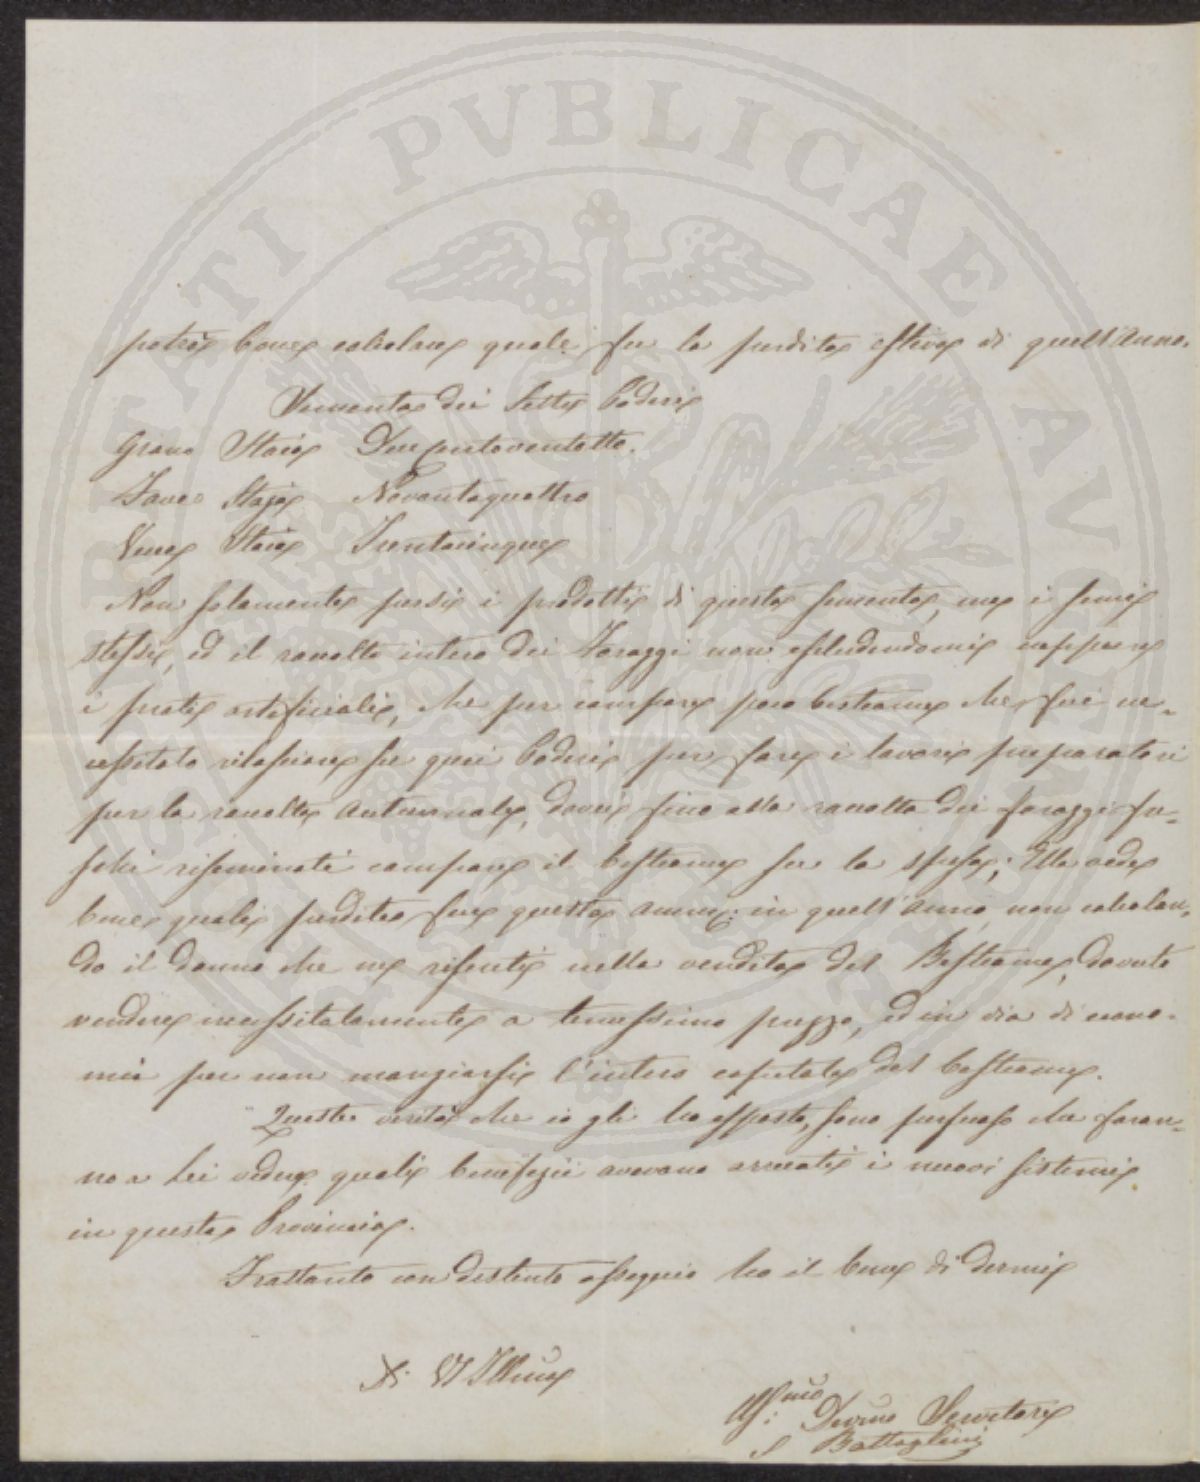 PVBLICAE VTILITATI AVGENDAE
potrà bene calcolare quale fu la perdita estiva di quell'Anno.
Sementa dei Sette Poderi
Grano Staia Duegentoventotto.
Fave Staja Novantaquattro
Vena Staia Trentacinque
Non solamente persi i prodotti di questa sementa, ma i semi
stessi, ed il raccolto intero dei Foraggi non escludendomi neppure
i prati artificiali, che per campare poco bestiame che fui ne-
cessitato rilasciare su quei Poderi per fare i lavori preparatori
per la raccolta Autunnale, dovei fino alla raccolta dei foraggi fre-
schi riseminati campare il bestiame su la spesa; Ella vede
bene quali perdite in quell'Anno, non calcolan-
do il danno che ne risentij nella vendita del Bestiame, dovuto
vendere necessitatamente a tenuissimo prezzo, ed in via di econo-
mia per non mangiarsi l'intero capitale del bestiame.
Queste verità che io gli ho esposto, sono persuaso che faran-
no a Lei vedere quali benefizii avevano arrecati i nuovi sistemi
in questa Provincia.
Frattanto con distinto ossequio ho il bene di dirmi
Di VS Illma
Devmo Servitore
Battaglini